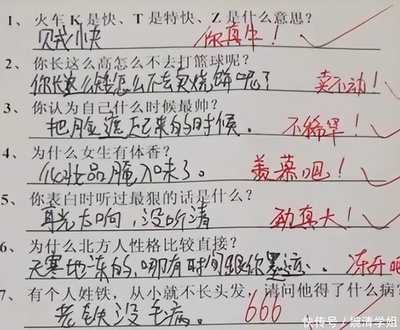 1、火车 K 是快、T 是特快、Z 是什么意思?
贼快 你真牛!
2、你长这么高怎么不去打篮球呢?
你长这么矮怎么不去卖烧饼呢? 卖不动!
3、你认为自己什么时候最帅?
把脸遮起来的时候。 不稀罕!
4、为什么女生有体香?
化妆品腌入味了。 羡慕吧!
5、你表白时听过最狠的话是什么?
耳光太响,没听清 劲真大!
6、为什么北方人性格比较直接?
天寒地冻的,哪有时间跟你墨迹。 冻牙吧
7、有个人姓铁,从小就不长头发,请问他得了什么病?
老铁没毛病。 666
快传号/婉清学姐